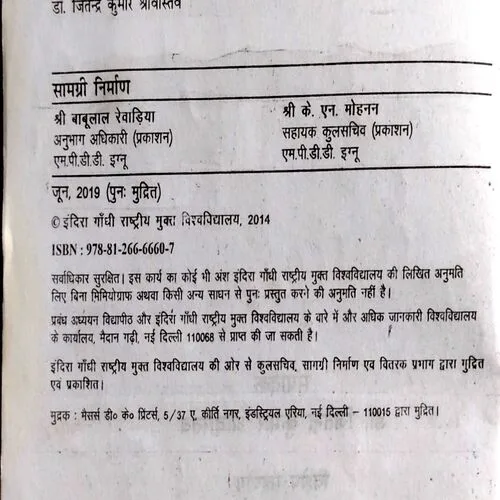 डा. जितेन्द्र कुमार श्रीवास्तव
सामग्री निर्माण
श्री बाबूलाल रेवाड़िया
अनुभाग अधिकारी (प्रकाशन)
एम.पी.डी.डी. इग्नू
श्री के. एन. मोहनन
सहायक कुलसचिव (प्रकाशन)
एम.पी.डी.डी. इग्नू
जून, 2019 (पुनः मुद्रित)
© इंदिरा गाँधी राष्ट्रीय मुक्त विश्वविद्यालय, 2014
ISBN : 978-81-266-6660-7
सर्वाधिकार सुरक्षित। इस कार्य का कोई भी अंश इंदिरा गाँधी राष्ट्रीय मुक्त विश्वविद्यालय की लिखित अनुमति
लिए बिना मिमियोग्राफ अथवा किसी अन्य साधन से पुनः प्रस्तुत करने की अनुमति नहीं है।
प्रबंध अध्ययन विद्यापीठ और इंदिरा गाँधी राष्ट्रीय मुक्त विश्वविद्यालय के बारे में और अधिक जानकारी विश्वविद्यालय
के कार्यालय, मैदान गढ़ी, नई दिल्ली 110068 से प्राप्त की जा सकती है।
इंदिरा गाँधी राष्ट्रीय मुक्त विश्वविद्यालय की ओर से कुलसचिव, सागग्री निर्माण एव वितरक प्रभाग द्वारा मुद्रित
एवं प्रकाशित।
मुद्रक : मैसर्स डी० के० प्रिंटर्स, 5/37 ए, कीर्ति नगर, इंडस्ट्रियल एरिया, नई दिल्ली – 110015 द्वारा मुद्रित।